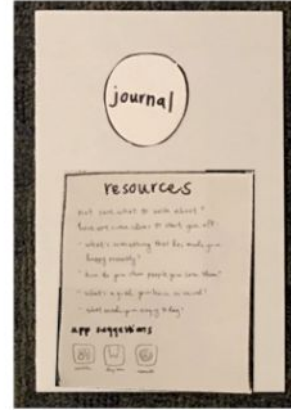 journal
resources
not sure what to write about?
here are some ideas to start you off:
- what's something that has made you
happy recently?
- how do you show people you love them?
- what's a goal you have in mind?
- what made you angry today?
app suggestions